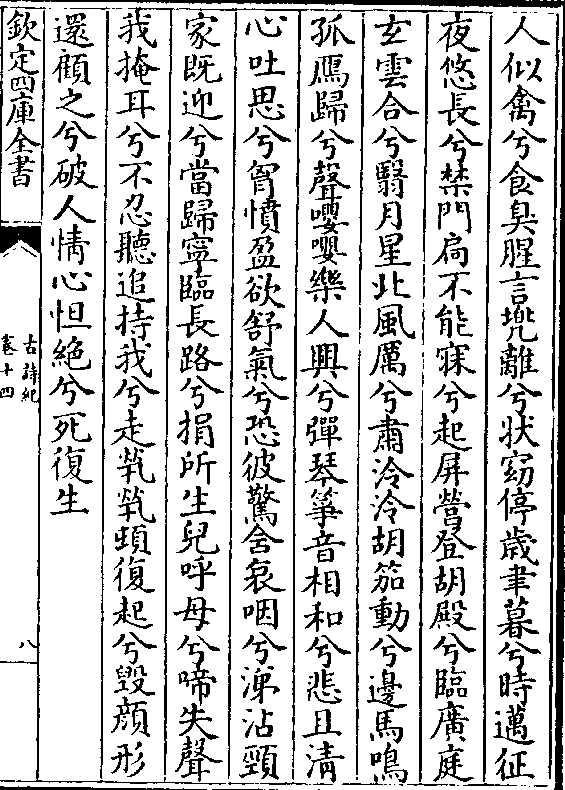 人似禽兮食臭腥言兠離兮状窈停歳聿暮兮時邁征
夜悠長兮禁門扄不能寐兮起屏營登胡殿兮臨廣庭
𤣥雲合兮翳月星北風厲兮肅泠泠胡笳動兮邊馬鳴
孤鴈歸兮聲嚶嚶樂人興兮彈琴箏音相和兮悲且清
心吐思兮胷憤盈欲舒氣兮恐彼驚含哀咽兮涕沾頸
家既迎兮當歸寧臨長路兮捐所生兒呼母兮啼失聲
我掩耳兮不忍聽追持我兮走煢煢頓復起兮毁顔形
還顧之兮破人情心怛絶兮死復生
欽定四庫全書
古詩紀
卷十四
八